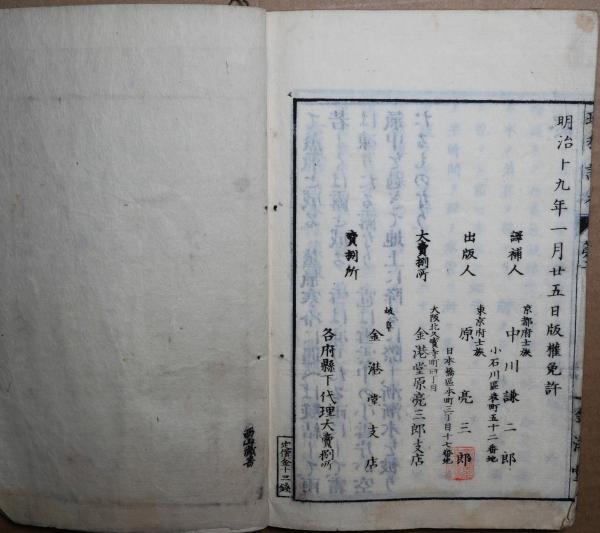 明治十九年一月廿五日版權免許
京都府士族
譯補人 中川謙二郎
小石川區表町五十二番地
東京府士族
出版人 原亮三郎
日本橋區本町三丁目十七番地
大阪北久寶寺町四丁目
大賣捌所 金港堂原亮三郎支店
岐阜
金港堂支店
賣捌所
各府縣下代理大賣捌所
定價金十三錢
西山藏書